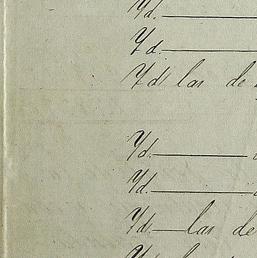 Yd.
Yd.
Yd. las de
Yd.
Yd.
Yd. las de
Yd.